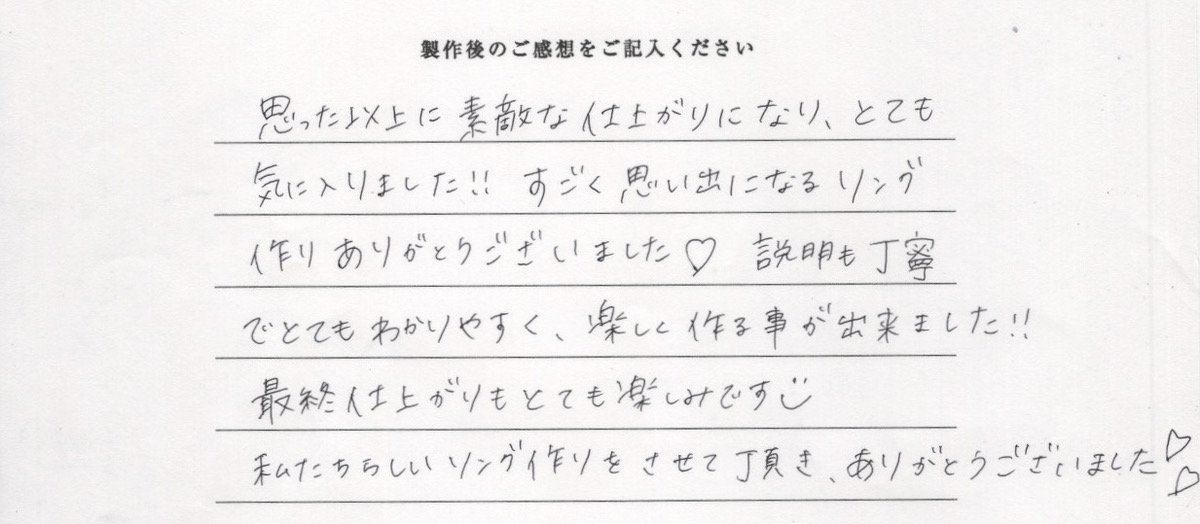 製作後のご感想をご記入ください
思った以上に素敵な仕上がりになり、とても
気に入りました!! すごく思い出になるリング
作りありがとうございました♡ 説明も丁寧
でとてもわかりやすく、楽しく作る事が出来ました!!
最終仕上がりもとても楽しみです
私たちらしいリング作りをさせて頂き、ありがとうございました♡♡